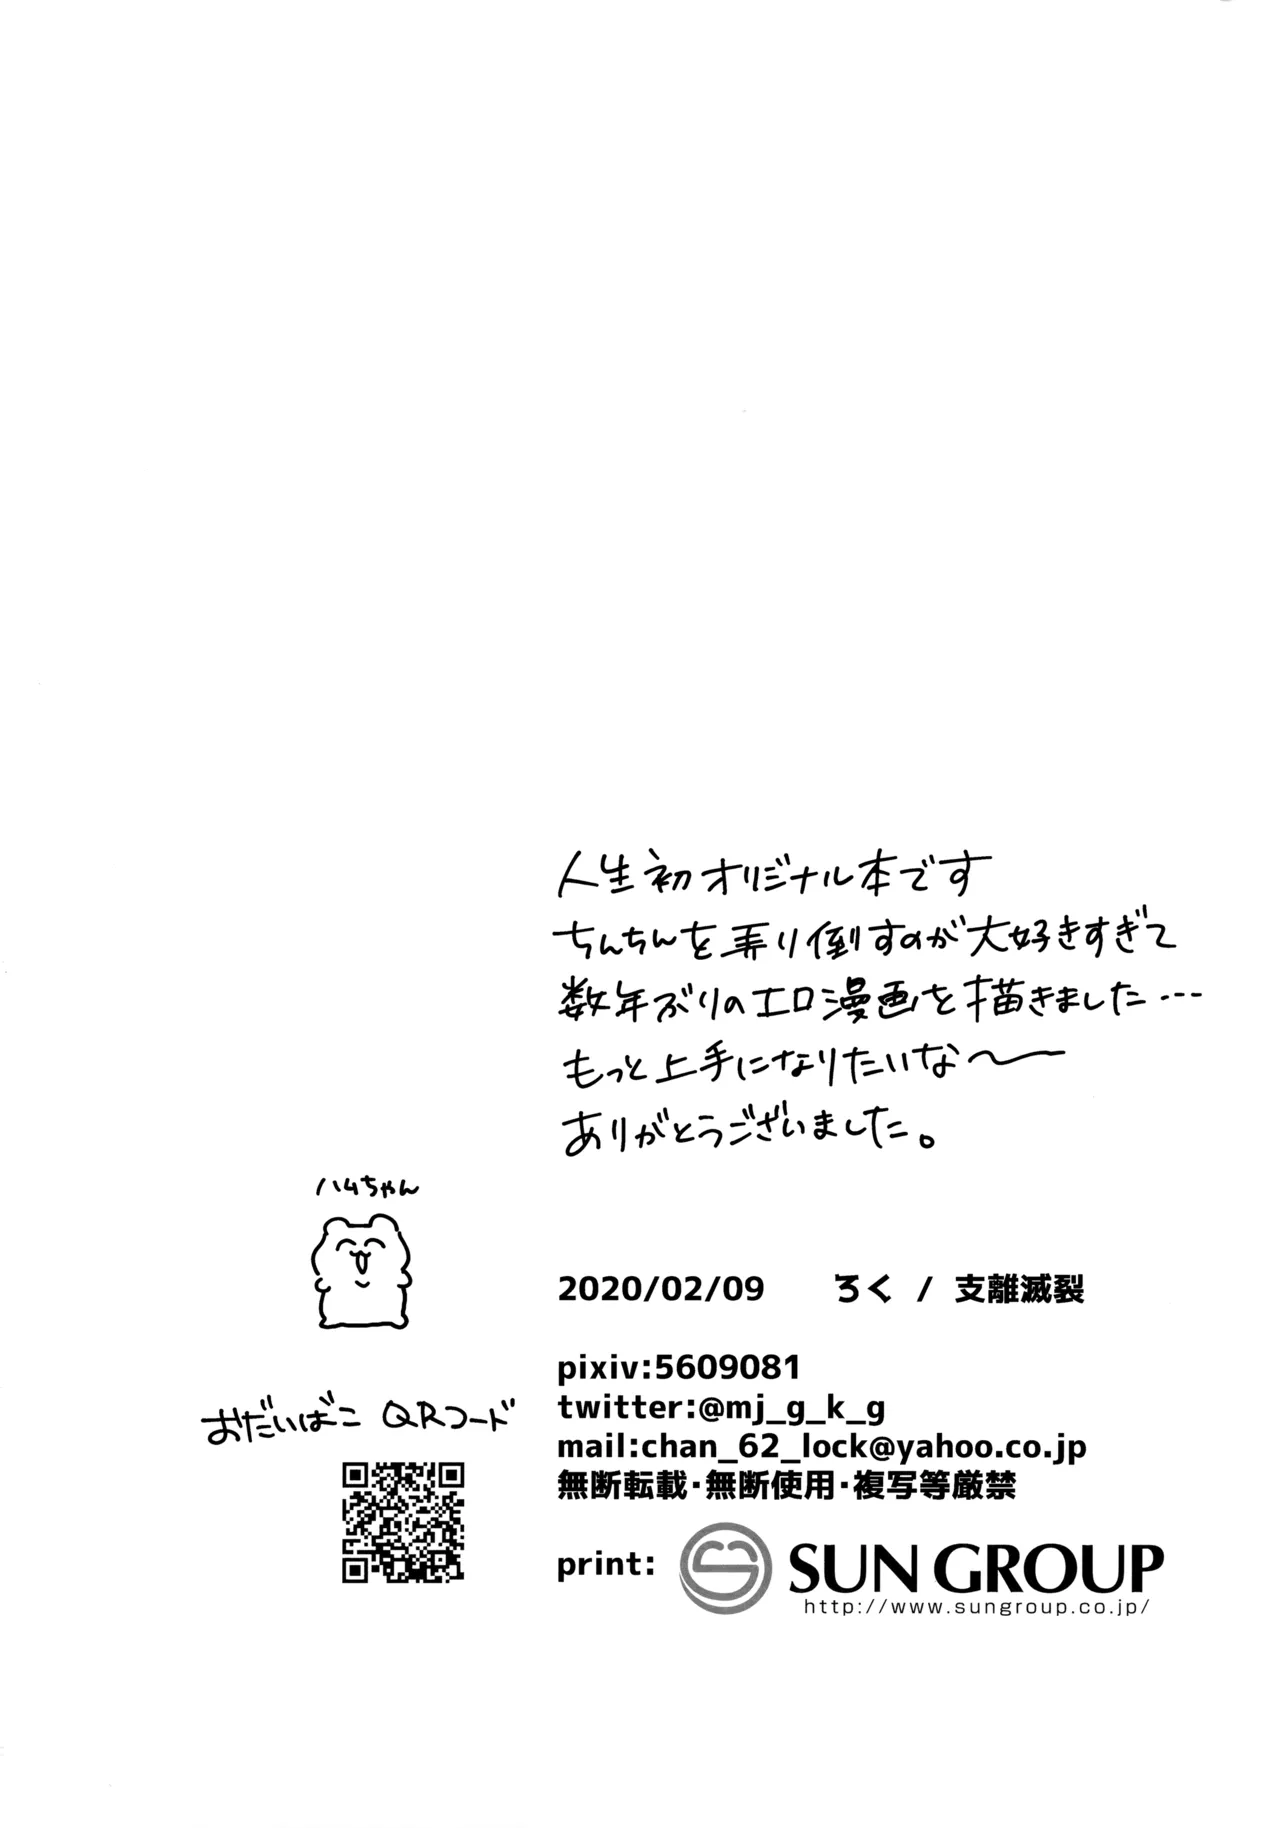 人生初オリジナル本です
ちんちんを弄り倒すのが大好きすぎて
数年ぶりのエロ漫画を描きました…
もっと上手になりたいな〜
ありがとうございました。
ハムちゃん
2020/02/09 ろく / 支離滅裂
pixiv:5609081
twitter:@mj_g_k_g
mail:chan_62_lock@yahoo.co.jp
無断転載・無断使用・複写等厳禁
おだいばこ QRコード
print: SUN GROUP
http://www.sungroup.co.jp/